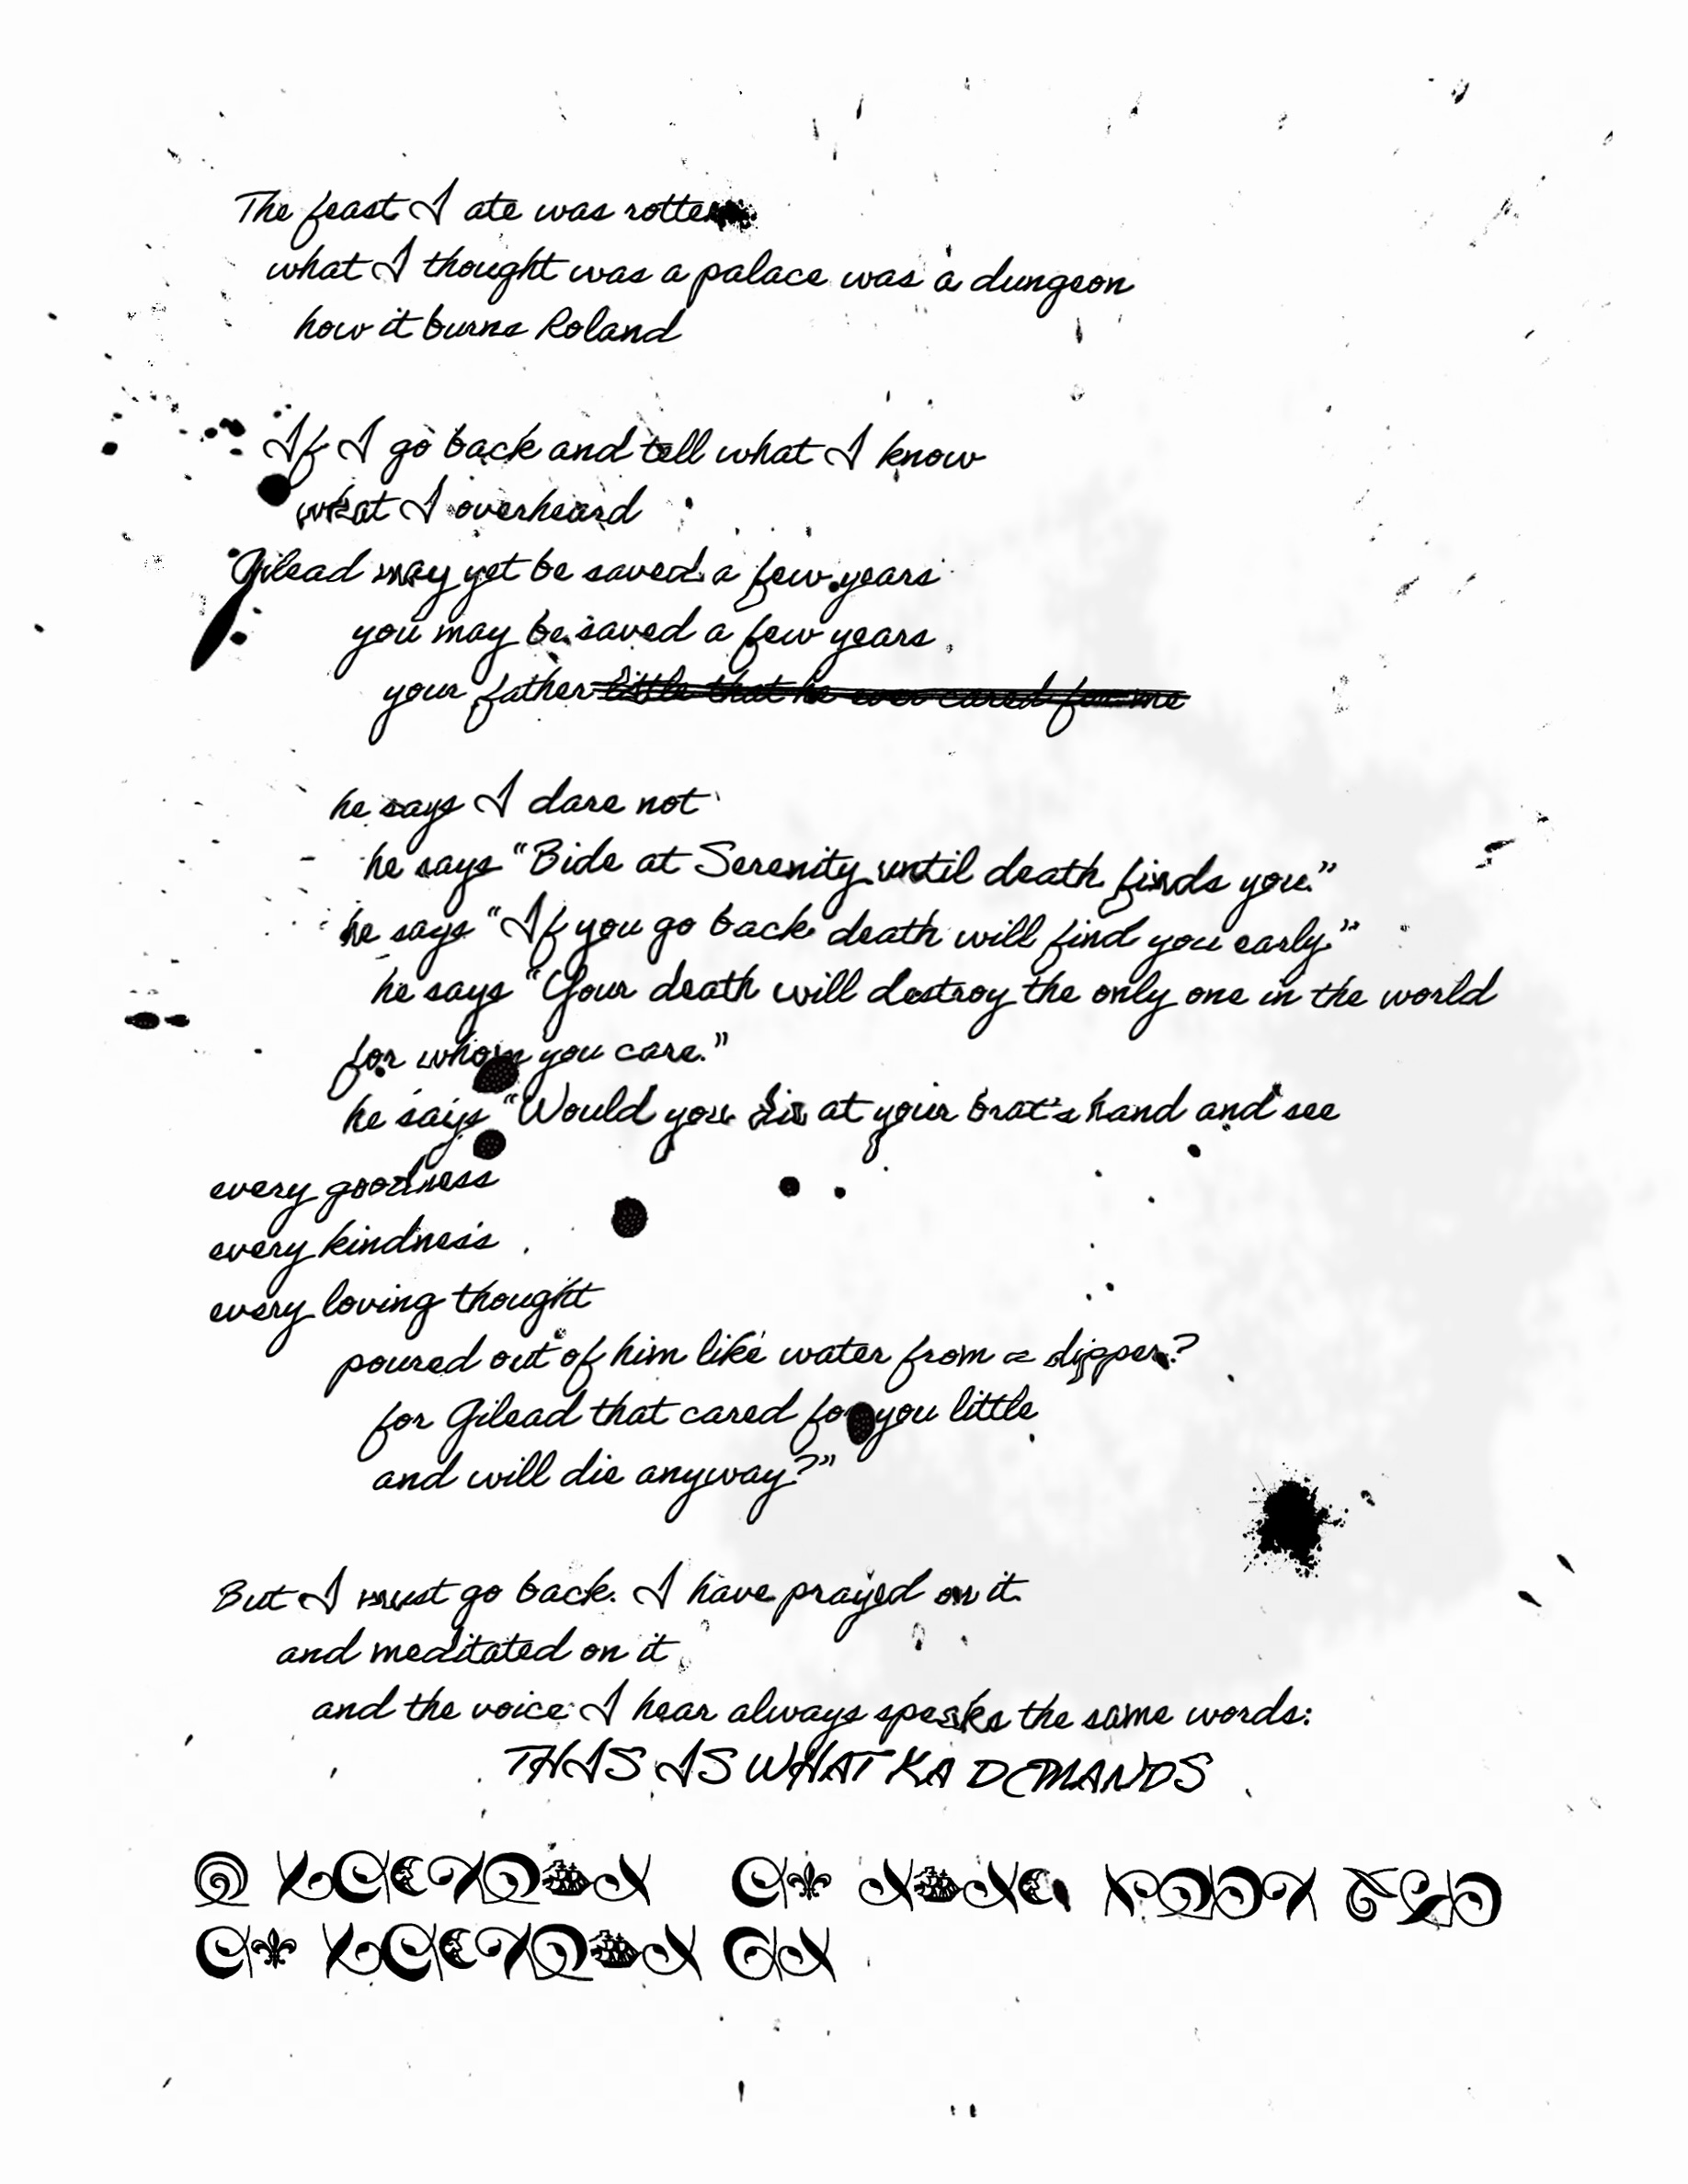 The feast I ate was rotten
what I thought was a palace was a dungeon
how it burns Roland
If I go back and tell what I know
what I overheard
Gilead may yet be saved a few years
you may be saved a few years
your father little that he ever cared for me
he says I dare not
he says “Bide at Serenity until death finds you.”
he says “If you go back death will find you early.”
he says “Your death will destroy the only one in the world
for whom you care.”
he says “Would you die at your brat's hand and see
every goodness
every kindness
every loving thought
poured out of him like water from a dipper?
for Gilead that cared for you little
and will die anyway?”
But I must go back. I have prayed on it
and meditated on it
and the voice I hear always speaks the same words:
THIS IS WHAT KA DEMANDS